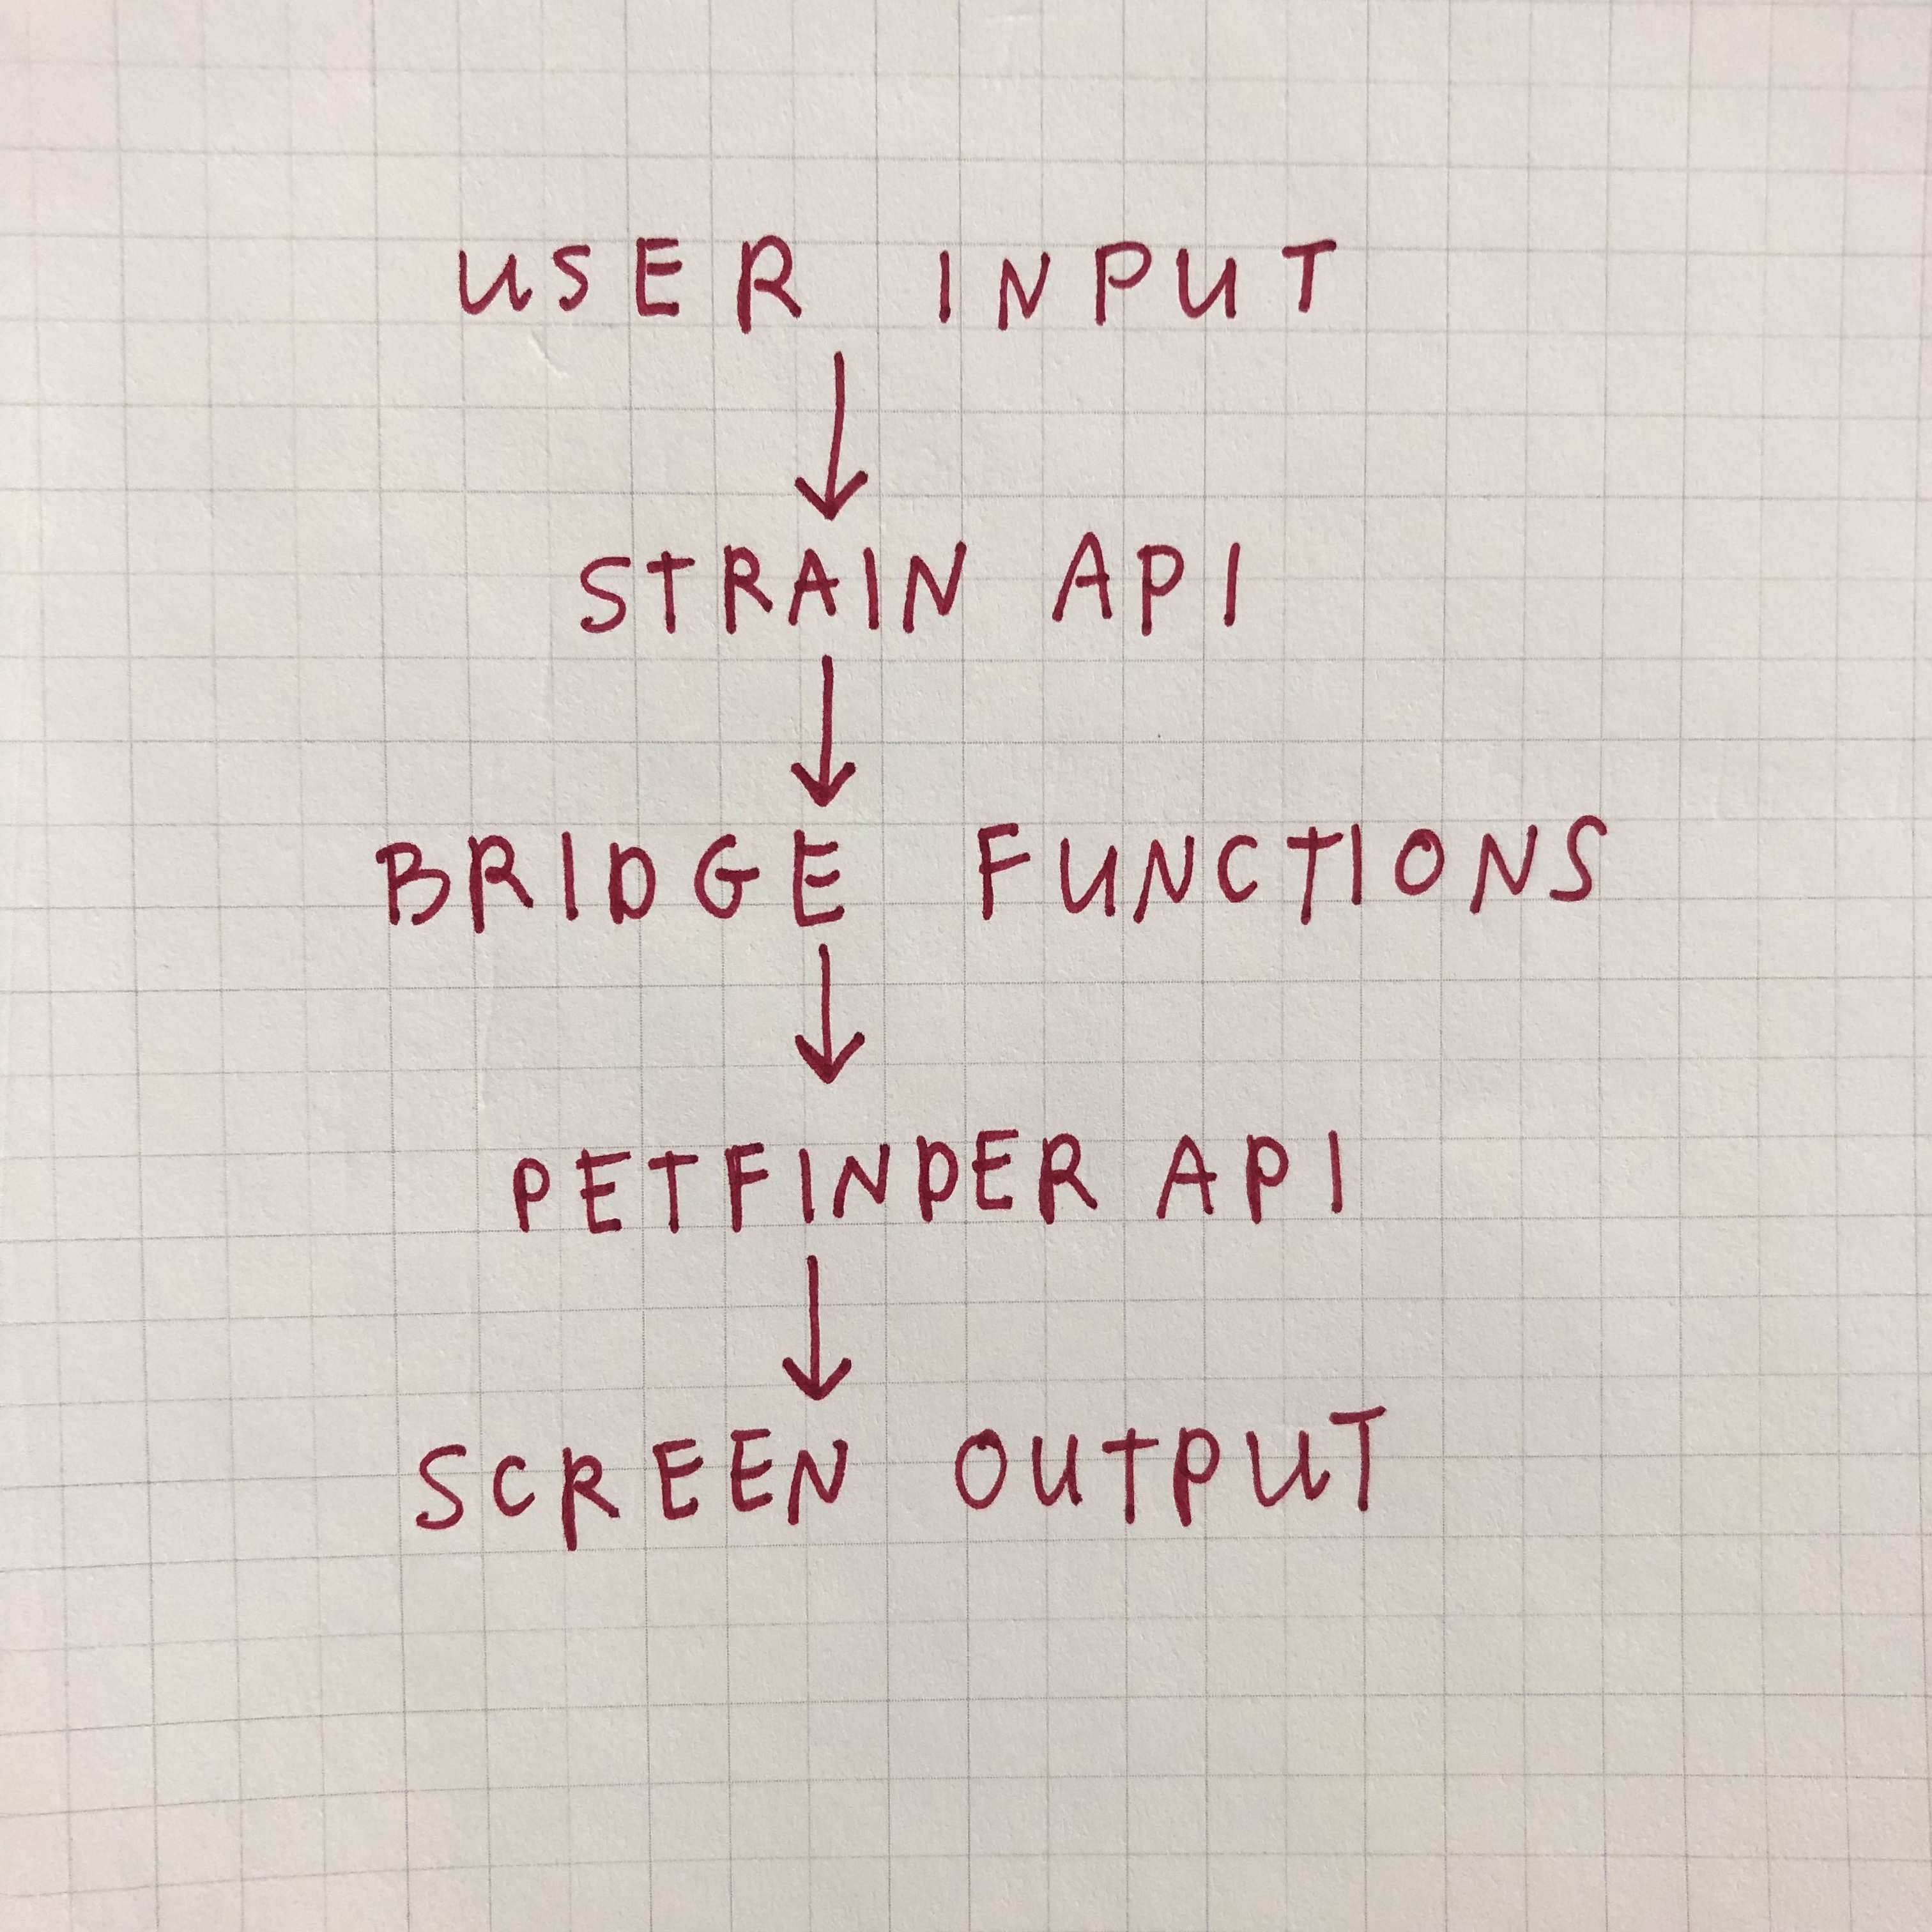 USER INPUT
STRAIN API
BRIDGE FUNCTIONS
PETFINDER API
SCREEN OUTPUT